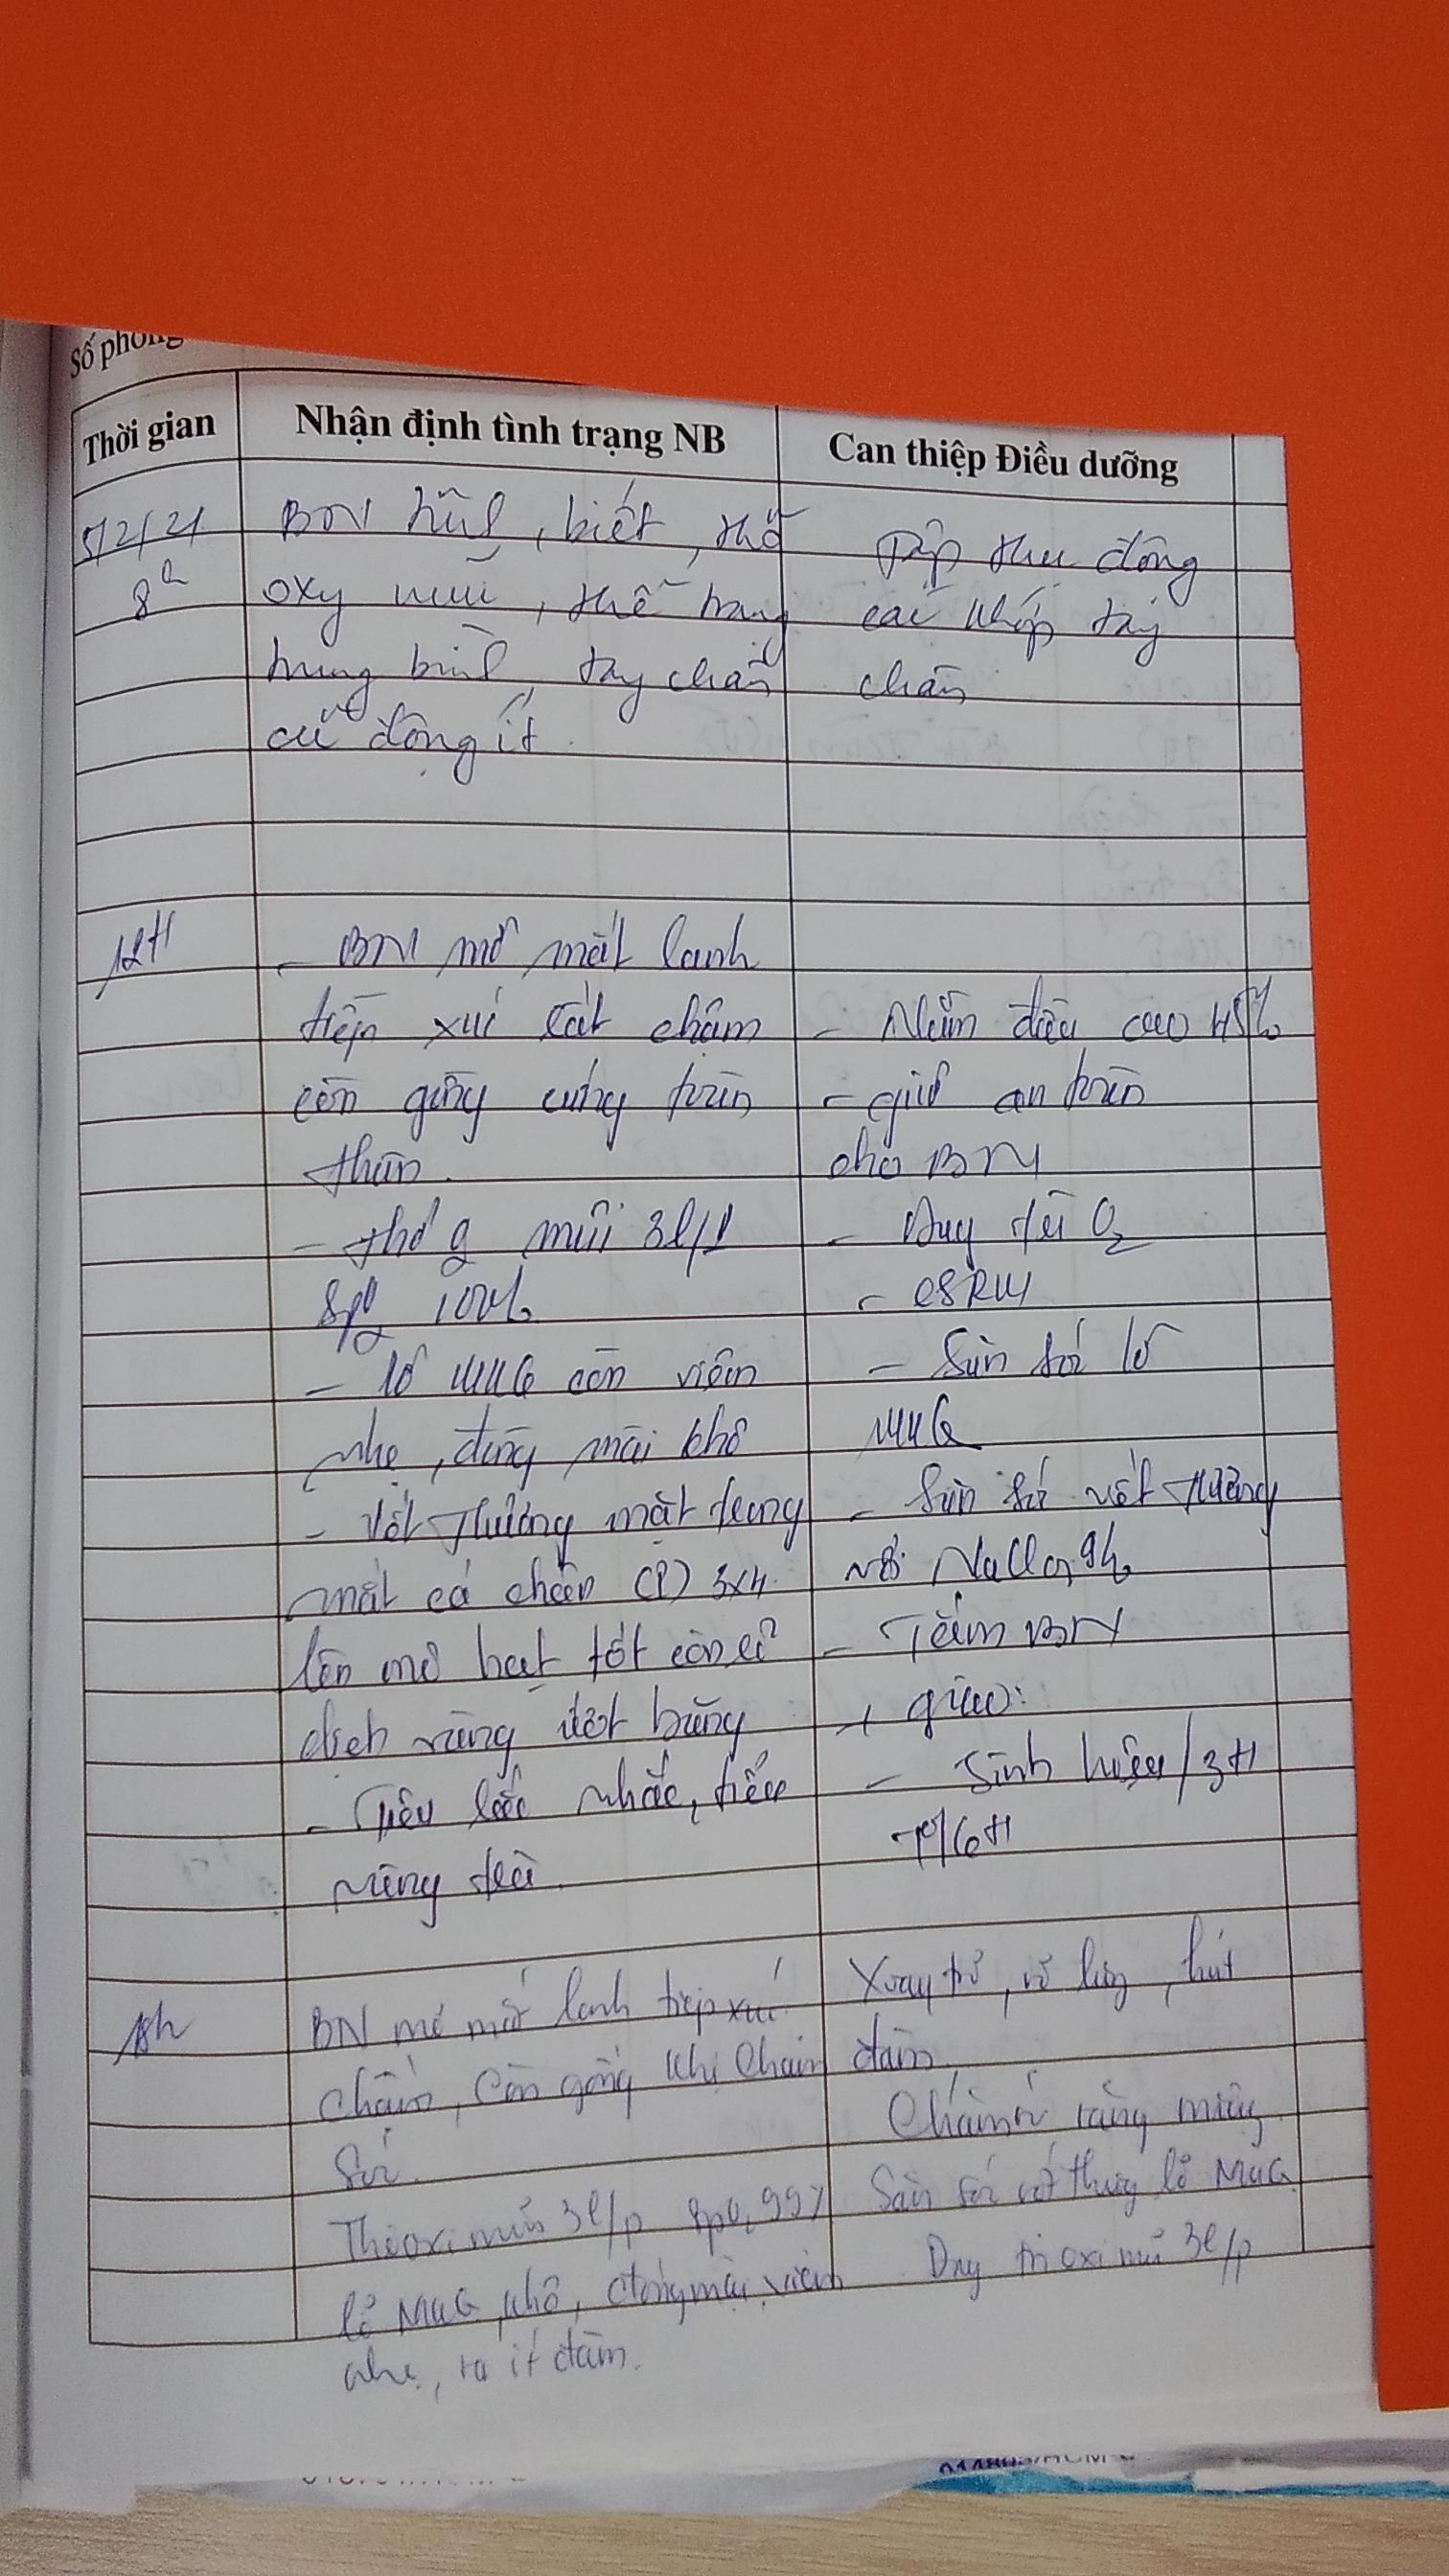 Số phòng
Thời gian
Nhận định tình trạng NB
Can thiệp Điều dưỡng
5/2/21
8h
BN tỉnh, biết, thở
oxy mũi, thể trạng
trung bình, tay chân
cử động ít.
Tập thụ động
các khớp tay
chân
12H
- BN mở mắt lanh
tiếp xúc rất chậm
còn gồng cứng toàn
thân.
- thở mũi 3l/p
SpO2 100%
- lỗ MKQ còn viêm
nhẹ, đùng mài khô
- Vết thương mặt trong
mắt cá chân (P) 3x4
lên mô hạt tốt còn ít
dịch vàng ướt băng
- Tiểu nhắc, tiểu
vàng
- Nằm đầu cao 45%
- giữ an toàn
cho BN
- Duy trì O2
- CSRM
- Săn sóc lỗ
MKQ
- Săn sóc vết thương
NaCl 0,9%
- Tắm BN
+ giao:
- Sinh hiệu/3H
- T°/6H
18h
BN mở mắt lanh tiếp xúc
chậm, còn gồng khi chăm
sóc.
Thở oxi mũi 3l/p SpO2 99%
lỗ MKQ khô, đùng mài, viêm
nhẹ, ra ít đàm.
Xoay trở, vỗ lưng, hút
đàm
Chăm sóc răng miệng
Săn sóc vết thương lỗ MKQ
Duy trì oxi mũi 3l/p